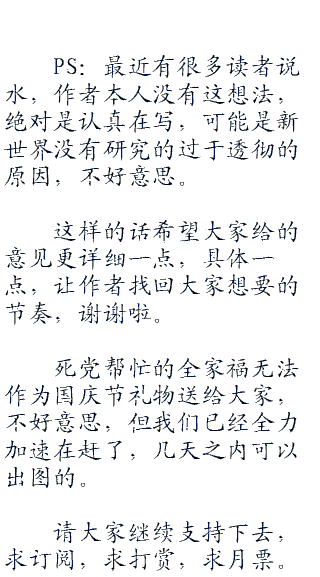 PS：最近有很多读者说
水，作者本人没有这想法，
绝对是认真在写，可能是新
世界没有研究的过于透彻的
原因，不好意思。
这样的话希望大家给的
意见更详细一点，具体一
点，让作者找回大家想要的
节奏，谢谢啦。
死党帮忙的全家福无法
作为国庆节礼物送给大家，
不好意思，但我们已经全力
加速在赶了，几天之内可以
出图的。
请大家继续支持下去，
求订阅，求打赏，求月票。